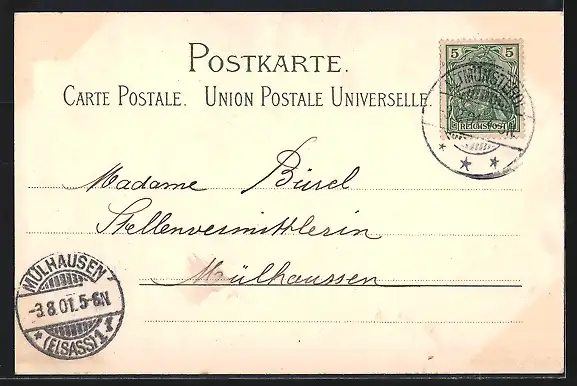 POSTKARTE.
CARTE POSTALE. UNION POSTALE UNIVERSELLE.
5 5
REICHSPOST
Madame Büsel
Stellenvermittlerin
Mülhaussen
MÜLHAUSEN
-3.8.01.5-6N
* (ELSASS) 1 f